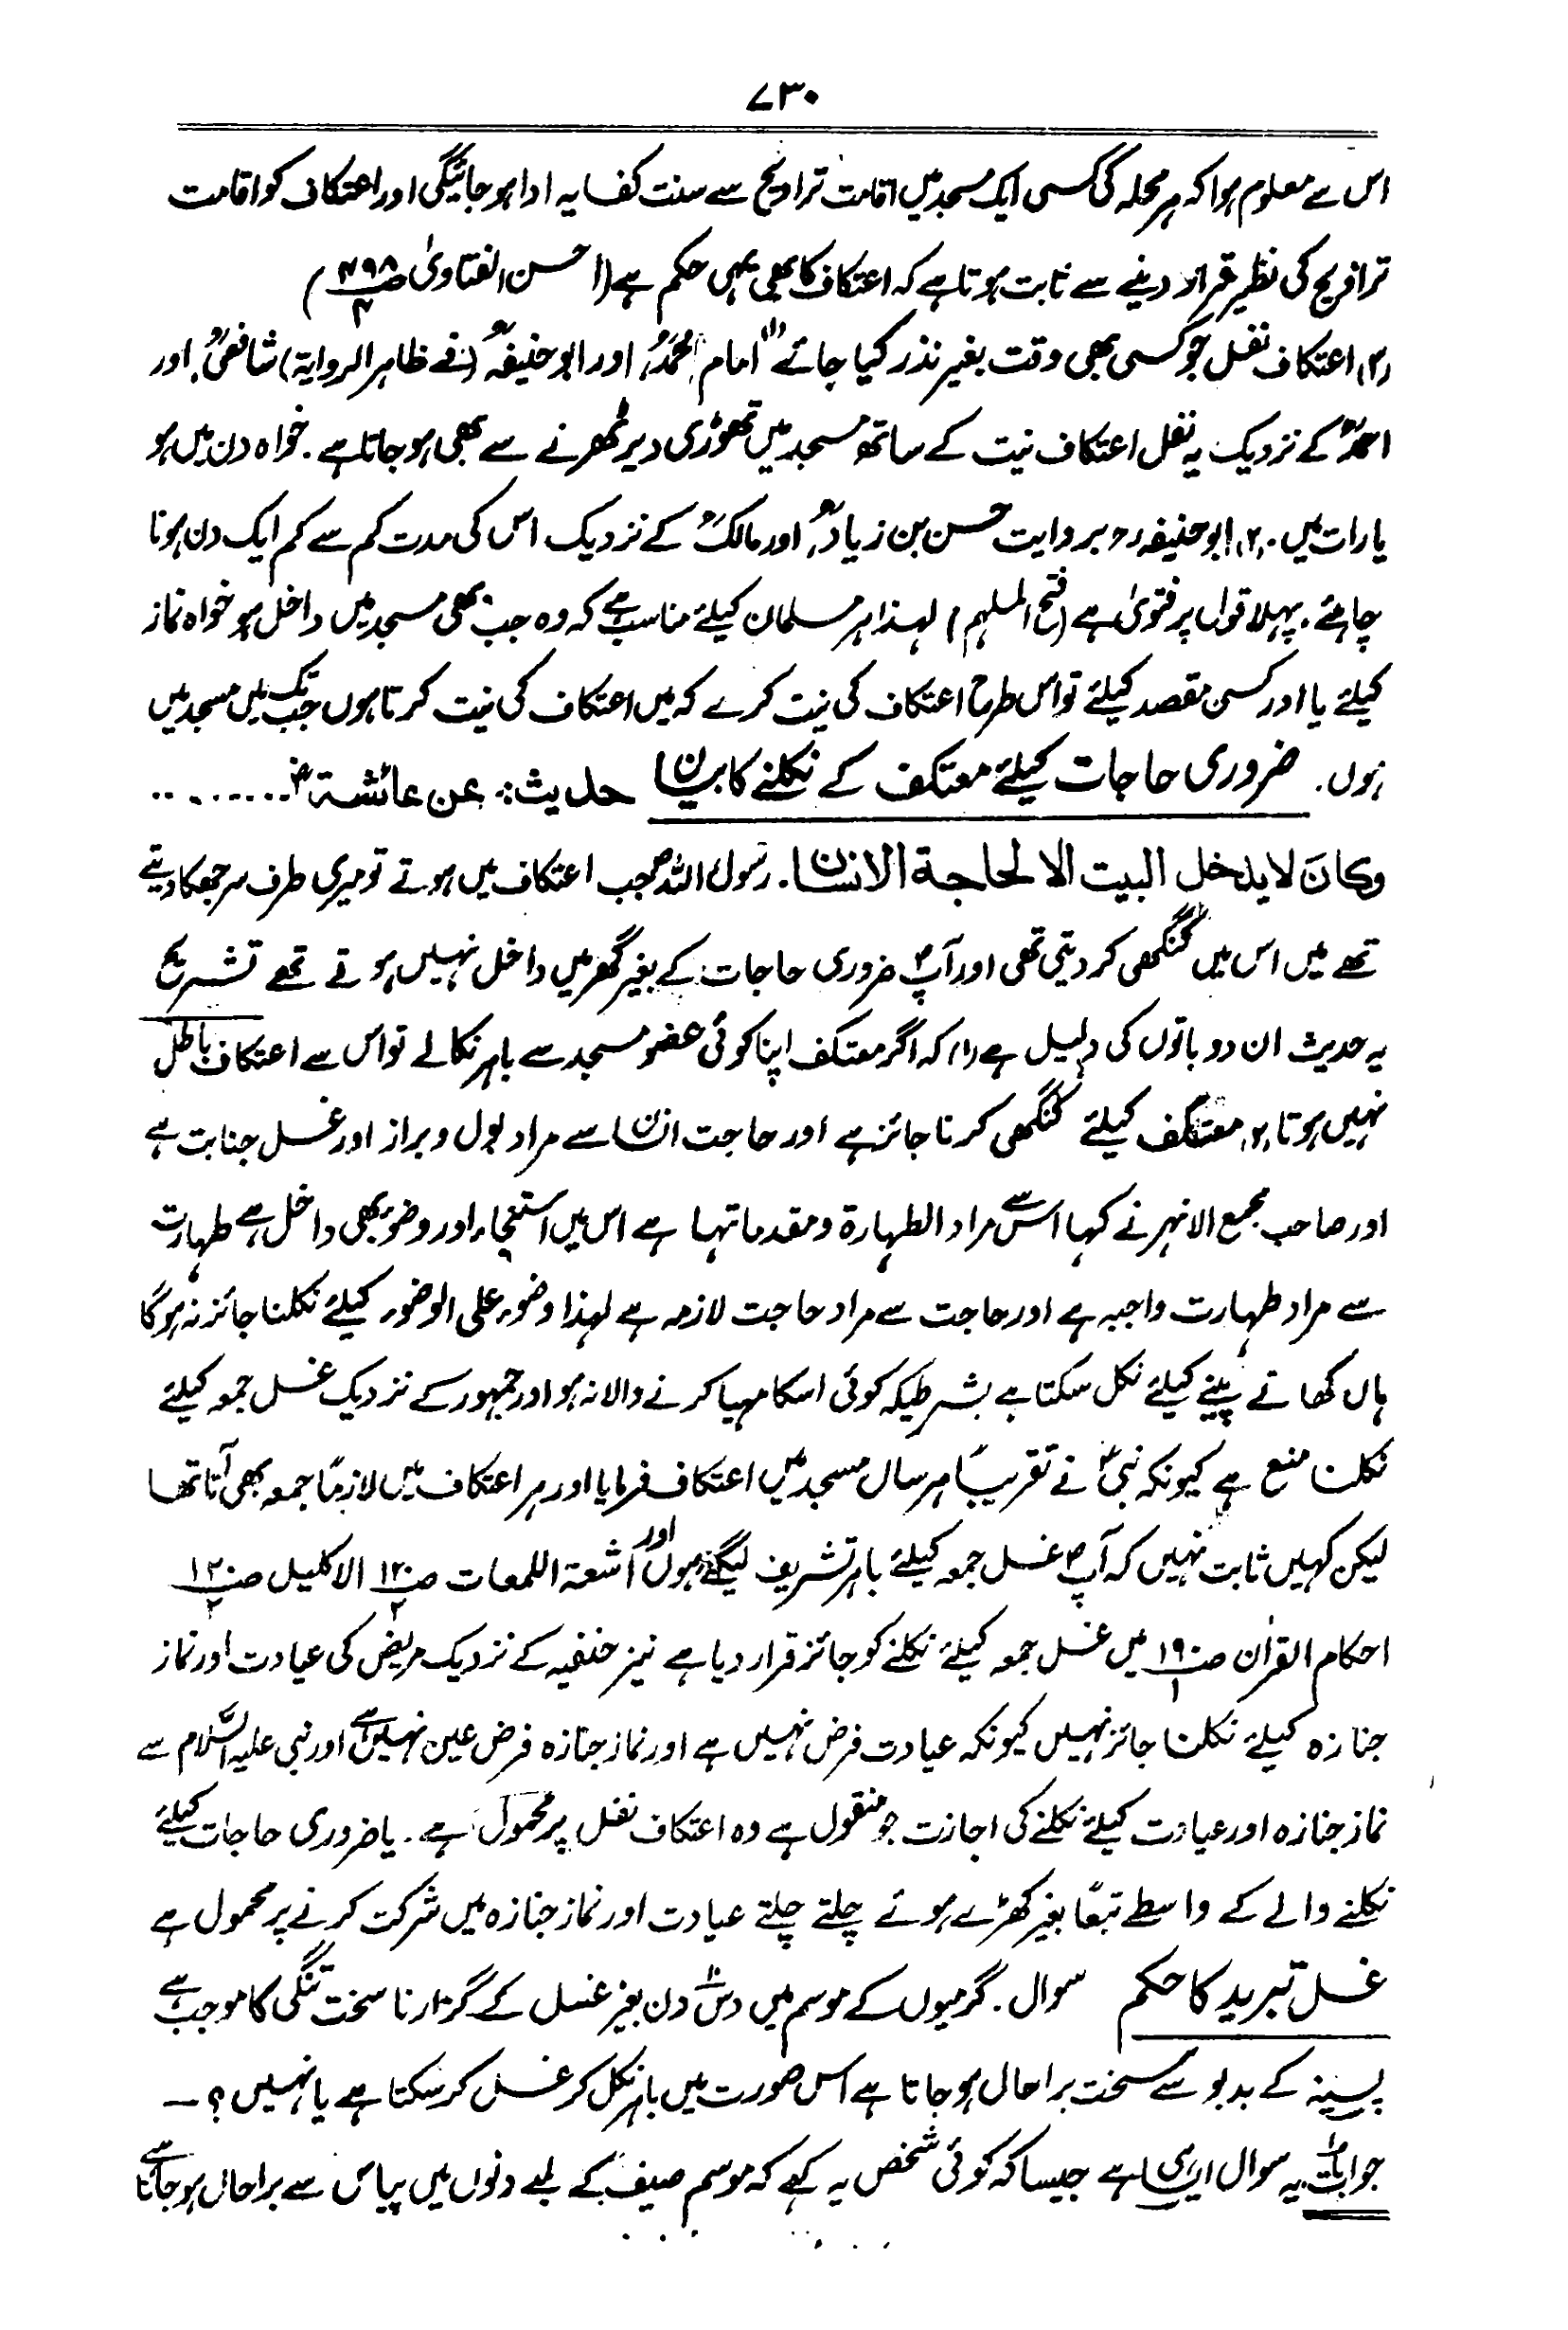 ۷۳۰
اس سے معلوم ہوا کہ ہر محلہ کی کسی ایک مسجد میں اقامت تراویح سے سنت کفایہ ادا ہو جائیگی اور اعتکاف کو اقامت
تراویح کی نظیر قرار دینے سے ثابت ہوتا ہے کہ اعتکاف کا بھی یہی حکم ہے (احسن الفتاویٰ ص۴۹۸/۴)
(۳) اعتکاف نفل جو کسی بھی وقت بغیر نذر کیا جائے (۱) امام محمدؒ، اور ابوحنیفہؒ (فے ظاہر الروایۃ) شافعیؒ، اور
احمدؒ کے نزدیک یہ نفل اعتکاف نیت کے ساتھ مسجد میں تھوڑی دیر ٹھرنے سے بھی ہو جاتا ہے . خواہ دن میں ہو
یا رات میں . (۲) ابوحنیفہ رح بروایت حسن بن زیادؒ، اور مالکؒ کے نزدیک اس کی مدت کم سے کم ایک دن ہونا
چاہئے . پہلا قول پر فتویٰ ہے (فتح الملہم) لہذا ہر مسلمان کیلئے مناسب ہے کہ وہ جب بھی مسجد میں داخل ہو خواہ نماز
کیلئے یا اور کسی مقصد کیلئے تو اس طرح اعتکاف کی نیت کرے کہ میں اعتکاف کی نیت کرتا ہوں جب تک میں مسجد میں
ہوں . ضروری حاجات کیلئے معتکف کے نکلنے کا بیان حدیث : عن عائشۃ رض ........
وکان لا یدخل البیت الا لحاجۃ الانسان . رسول اللہ ص جب اعتکاف میں ہوتے تو میری طرف سر جھکا دیتے
تھے میں اس میں کنگھی کر دیتی تھی اور آپؐ ضروری حاجات کے بغیر گھر میں داخل نہیں ہوتے تھے تشریح
یہ حدیث ان دو باتوں کی دلیل ہے (۱) کہ اگر معتکف اپنا کوئی عضو مسجد سے باہر نکالے تو اس سے اعتکاف باطل
نہیں ہوتا (۲) معتکف کیلئے کنگھی کرنا جائز ہے اور حاجت انسان سے مراد بول و براز اور غسل جنابت ہے
اور صاحب مجمع الانہر نے کہا اس سے مراد الطہارۃ ومقدماتہا ہے اس میں استنجاء اور وضو بھی داخل ہے طہارت
سے مراد طہارت واجبہ ہے اور حاجت سے مراد حاجت لازمہ ہے لہذا وضوء علی الوضوء کیلئے نکلنا جائز نہ ہوگا
ہاں کھانے پینے کیلئے نکل سکتا ہے بشرطیکہ کوئی اسکا مہیا کرنے والا نہ ہو اور جمہور کے نزدیک غسل جمعہ کیلئے
نکلنا منع ہے کیونکہ نبیؐ نے تقریباً ہر سال مسجد میں اعتکاف فرمایا اور ہر اعتکاف میں لازمًا جمعہ بھی آتا تھا
لیکن کہیں ثابت نہیں کہ آپؐ غسل جمعہ کیلئے باہر تشریف لیگئے ہوں اور اشعۃ اللمعات ص۱۲۰/۲ الاکلیل ص۱۲۰/۲
احکام القرآن ص۱۹۰/۱ میں غسل جمعہ کیلئے نکلنے کو جائز قرار دیا ہے نیز حنفیہ کے نزدیک مریض کی عیادت اور نماز
جنازہ کیلئے نکلنا جائز نہیں کیونکہ عیادت فرض نہیں ہے اور نماز جنازہ فرض عین نہیں ہے اور نبی علیہ السّلام سے
نماز جنازہ اور عیادت کیلئے نکلنے کی اجازت جو منقول ہے وہ اعتکاف نفل پر محمول ہے . یا ضروری حاجات کیلئے
نکلنے والے کے واسطے تبعًا بغیر کھڑے ہوئے چلتے چلتے عیادت اور نماز جنازہ میں شرکت کرنے پر محمول ہے
غسل تبرید کا حکم سوال . گرمیوں کے موسم میں دس دن بغیر غسل کے گزارنا سخت تنگی کا موجب ہے
پسینہ کے بدبو سے سخت برا حال ہو جاتا ہے اس صورت میں باہر نکل کر غسل کر سکتا ہے یا نہیں ؟ –
جوابات یہ سوال ایسا ہی ہے جیسا کہ کوئی شخص یہ کہے کہ موسم صیف کے لمبے دنوں میں پیاس سے برا حال ہو جاتا ہے